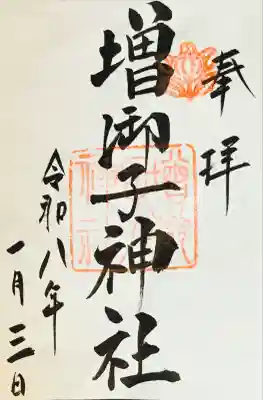 奉拝
増御子神社
令和八年
一月三日